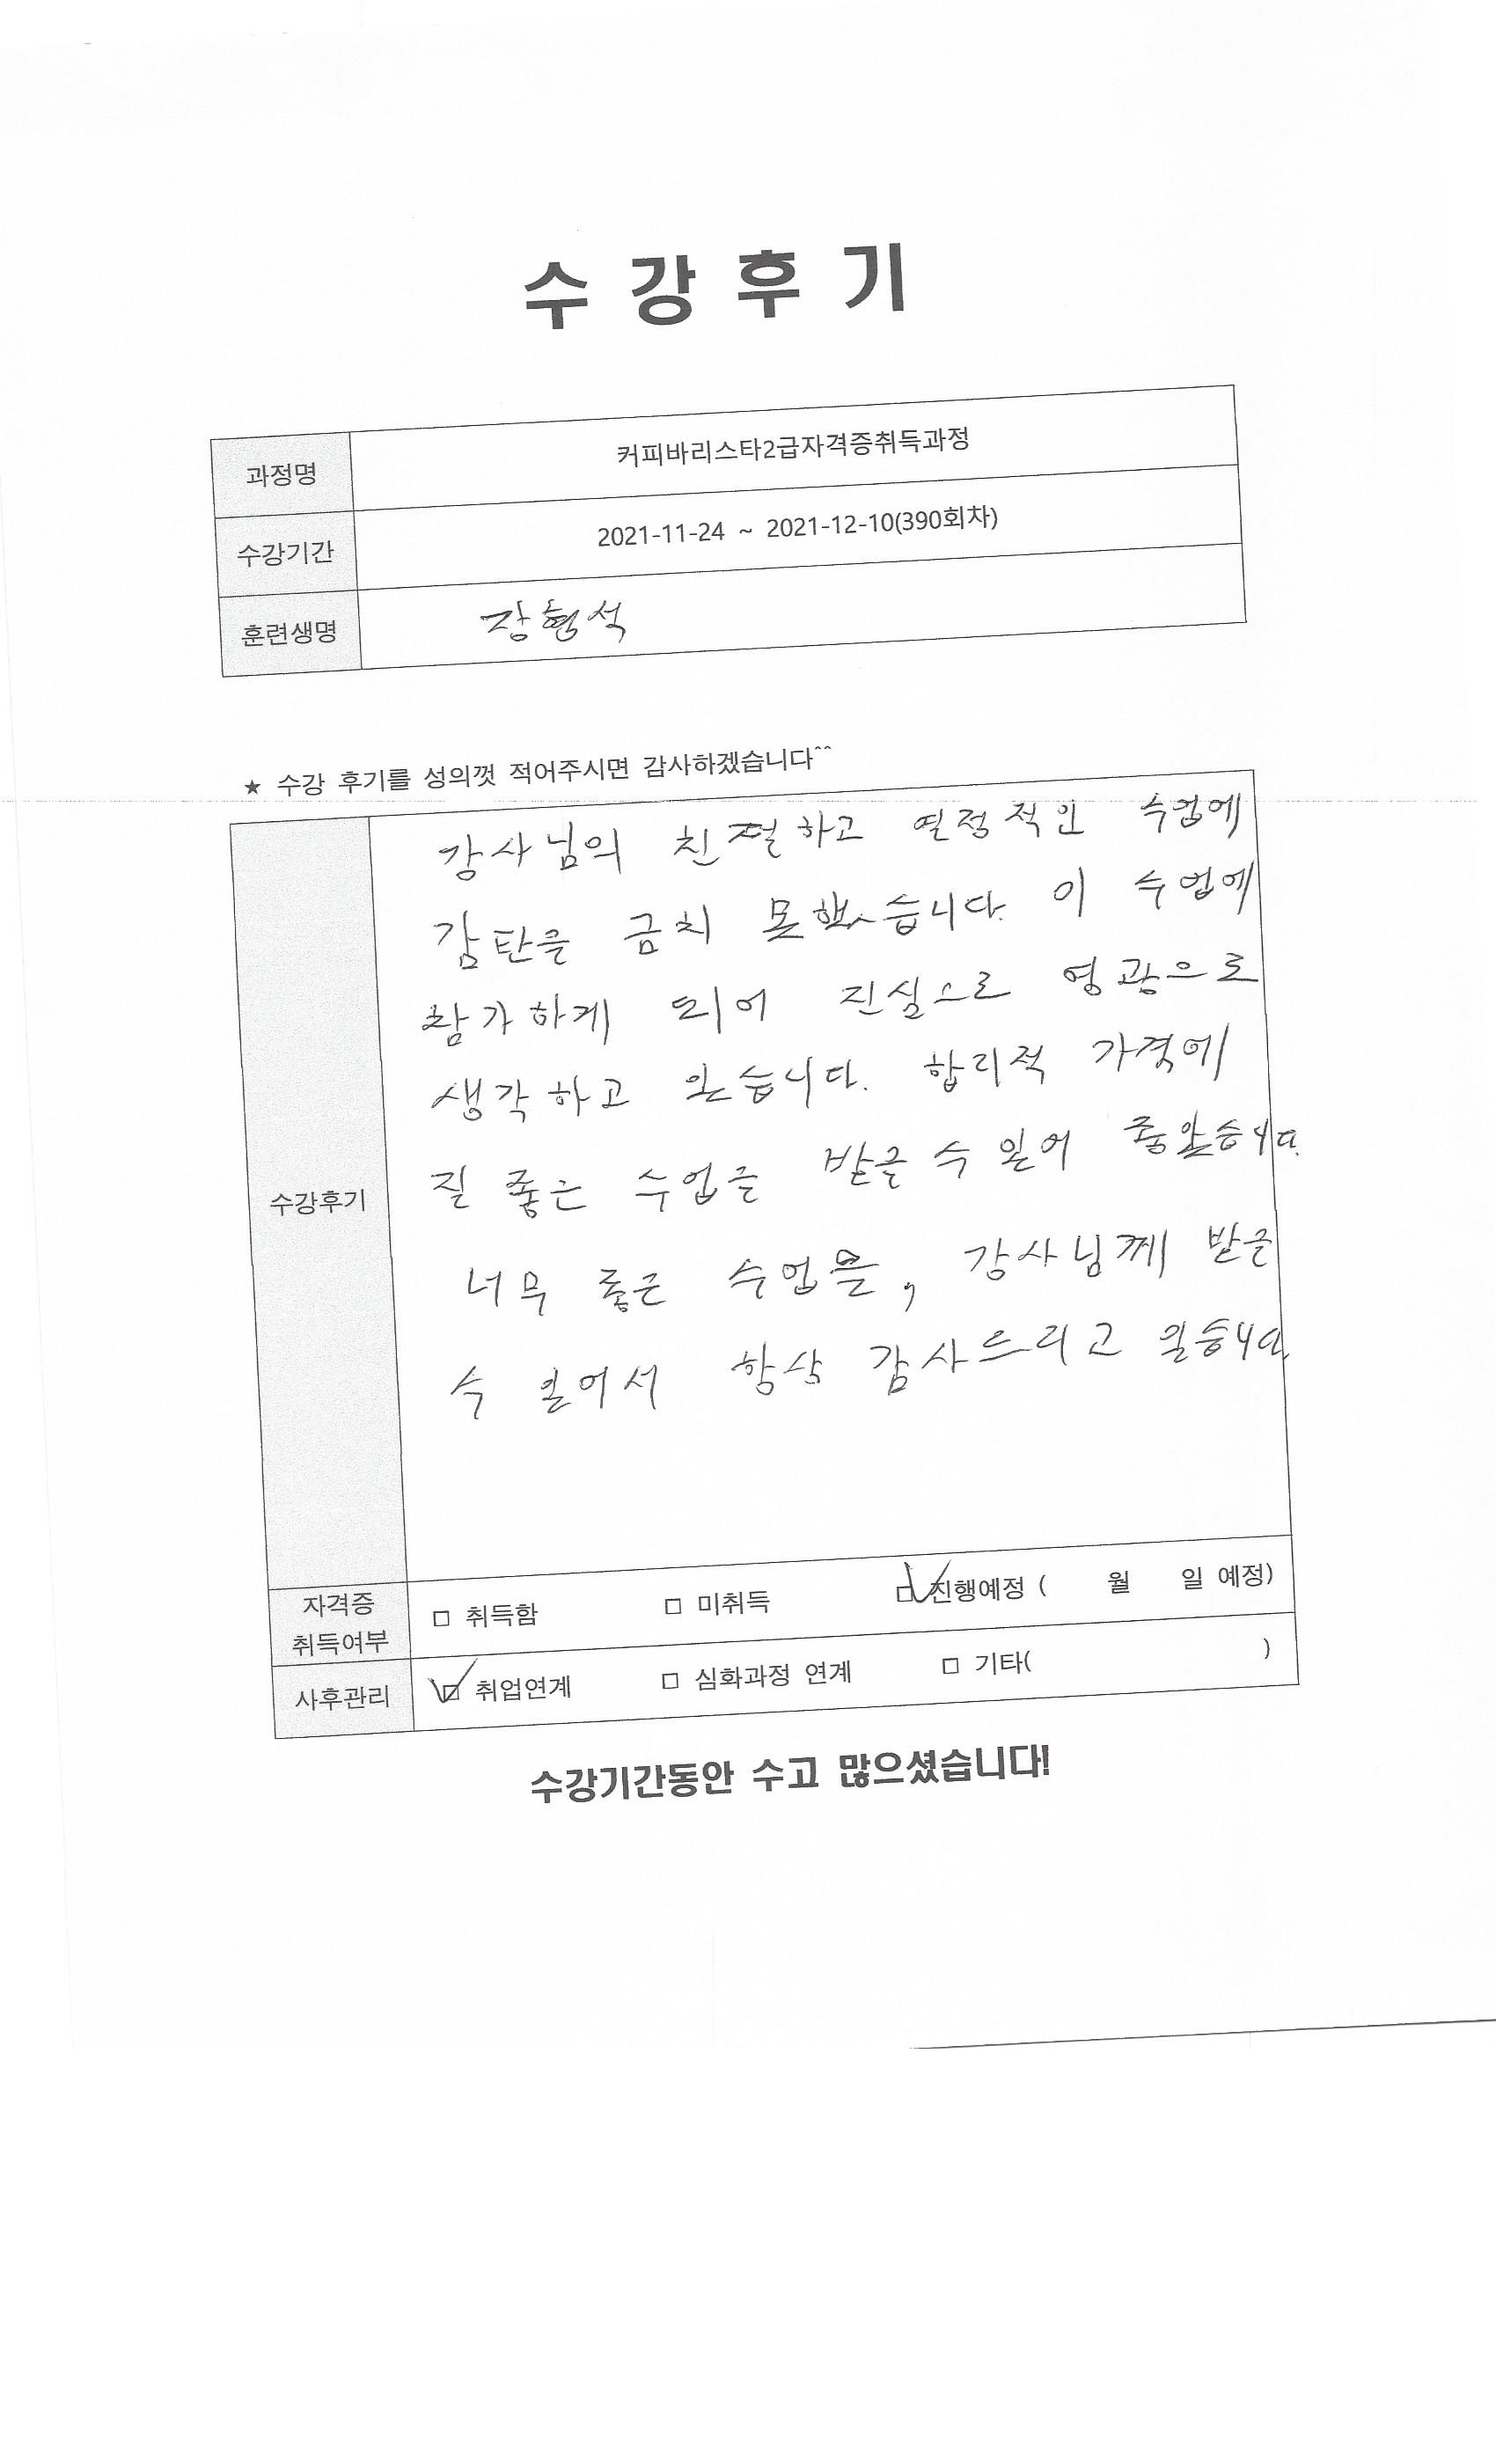 수강후기
과정명 커피바리스타2급자격증취득과정
수강기간 2021-11-24 ~ 2021-12-10(390회차)
훈련생명 장형석
★ 수강 후기를 성의껏 적어주시면 감사하겠습니다^^
강사님의 친절하고 열정적인 수업에
감탄을 금치 못했습니다. 이 수업에
참가하게 되어 진실으로 영광으로
생각하고 있습니다. 합리적 가격에
수강후기 질 좋은 수업을 받을 수 있어 좋았습니다.
너무 좋은 수업을, 강사님께 받을
수 있어서 항상 감사드리고 있습니다.
자격증 취득여부 □ 취득함 □ 미취득 ☑ 진행예정 ( 월 일 예정)
사후관리 ☑ 취업연계 □ 심화과정 연계 □ 기타( )
수강기간동안 수고 많으셨습니다!